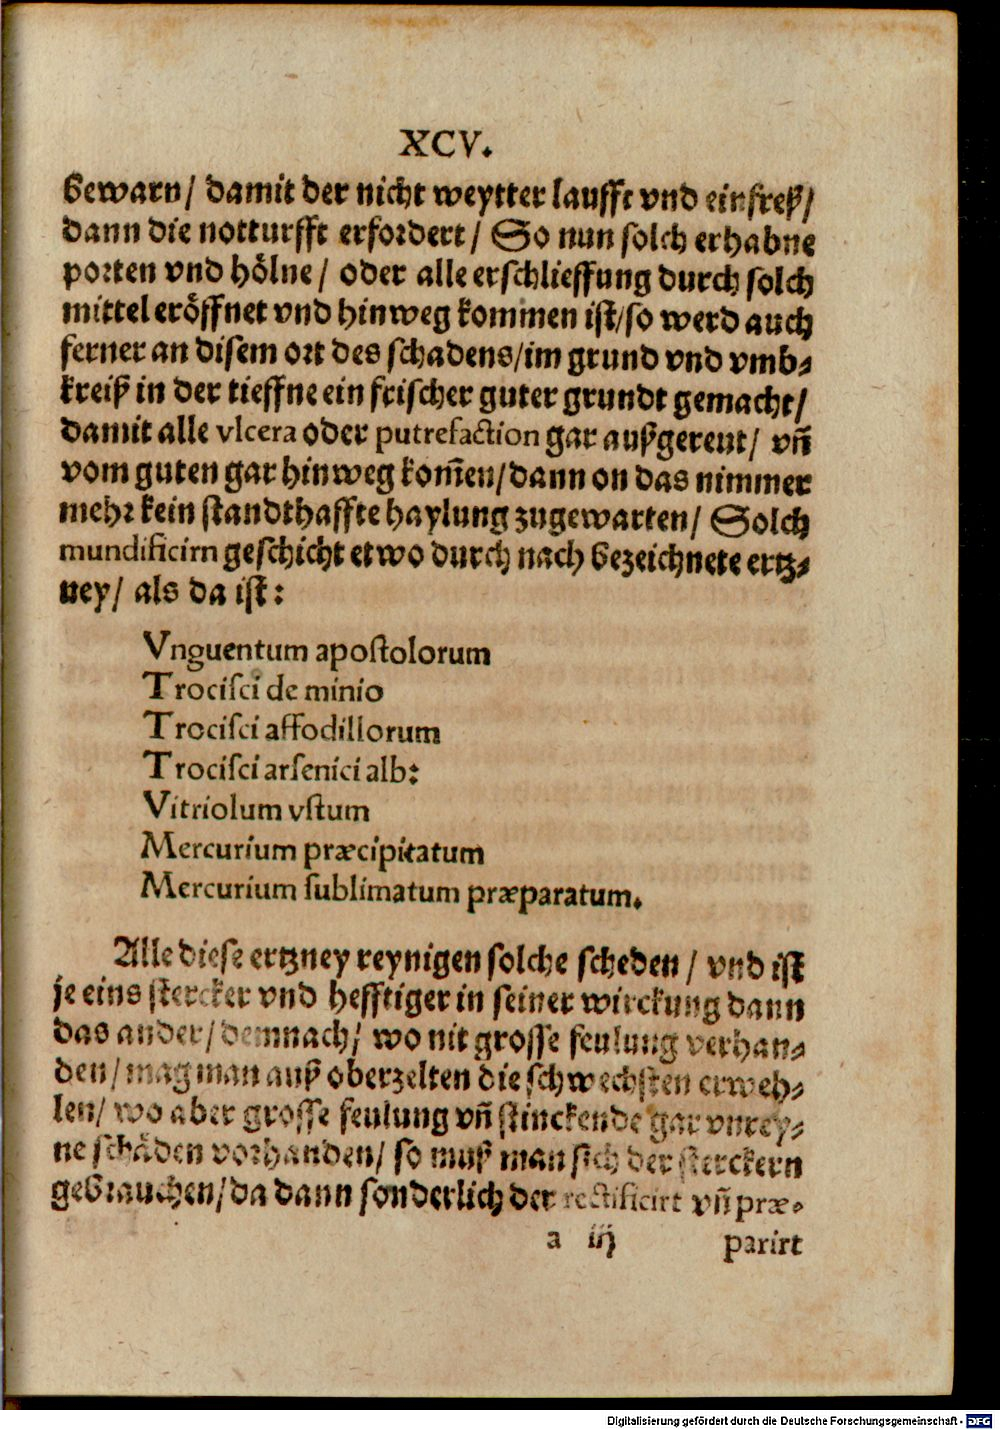 XCV.
bewarn/ damit der nicht weytter laufft vnd einfreß/
dann die notturfft erfordert/ So nun solch erhabne
porten vnd hölne/ oder alle erschlieffung durch solch
mittel eröffnet vnd hinweg kommen ist/so werd auch
ferner an disem ort des schadens/im grund vnd vmb⸗
kreiß in der tieffne ein frischer guter grundt gemacht/
damit alle vlcera oder putrefaction gar außgereut/ vñ
vom guten gar hinweg kom̃en/dann on das nimmer
mehr kein standthaffte haylung zugewarten/ Solch
mundificirn geschicht etwo durch nach bezeichnete ertz⸗
ney/ als da ist:
Vnguentum apostolorum
Trocisci de minio
Trocisci affodillorum
Trocisci arsenici alb:
Vitriolum vstum
Mercurium præcipitatum
Mercurium sublimatum præparatum.
Alle diese ertzney reynigen solche scheden/ vnd ist
je eins stercker vnd hefftiger in seiner wirckung dann
das ander/ demnach/ wo nit grosse feulung verhan⸗
den/ mag man auß oberzelten die schwechsten erweh⸗
len/ wo aber grosse feulung vñ stinckende gar vnrey⸗
ne schäden vorhanden/ so muß man sich der sterckern
gebrauchen/da dann sonderlich der rectificirt vñ præ⸗
a iij parirt
Digitalisierung gefördert durch die Deutsche Forschungsgemeinschaft - DFG